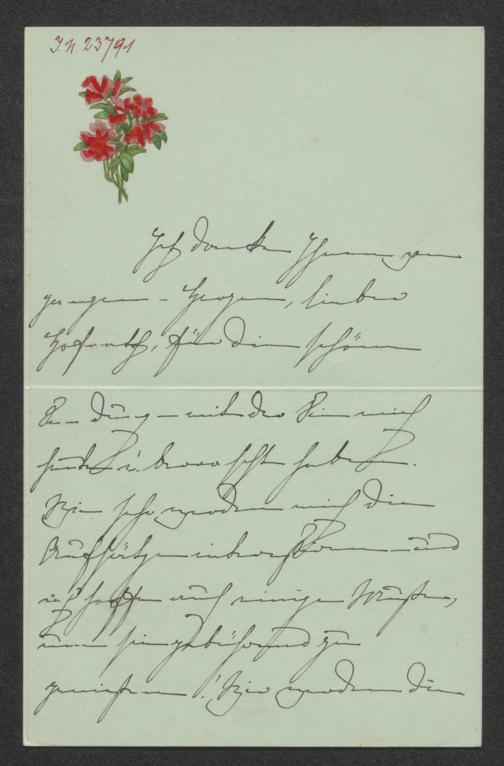 I.N. 23791
Ich danke Ihnen von
ganzem Herzen, lieber
Hofrath, für die schöne
Sendung mit der Sie mich
heute überrascht haben.
Wie sehr werden mich die
Aufsätze interessiren und
ich hoffe auf einige Muße,
um sie gebührend zu
genießen! Wie werden die